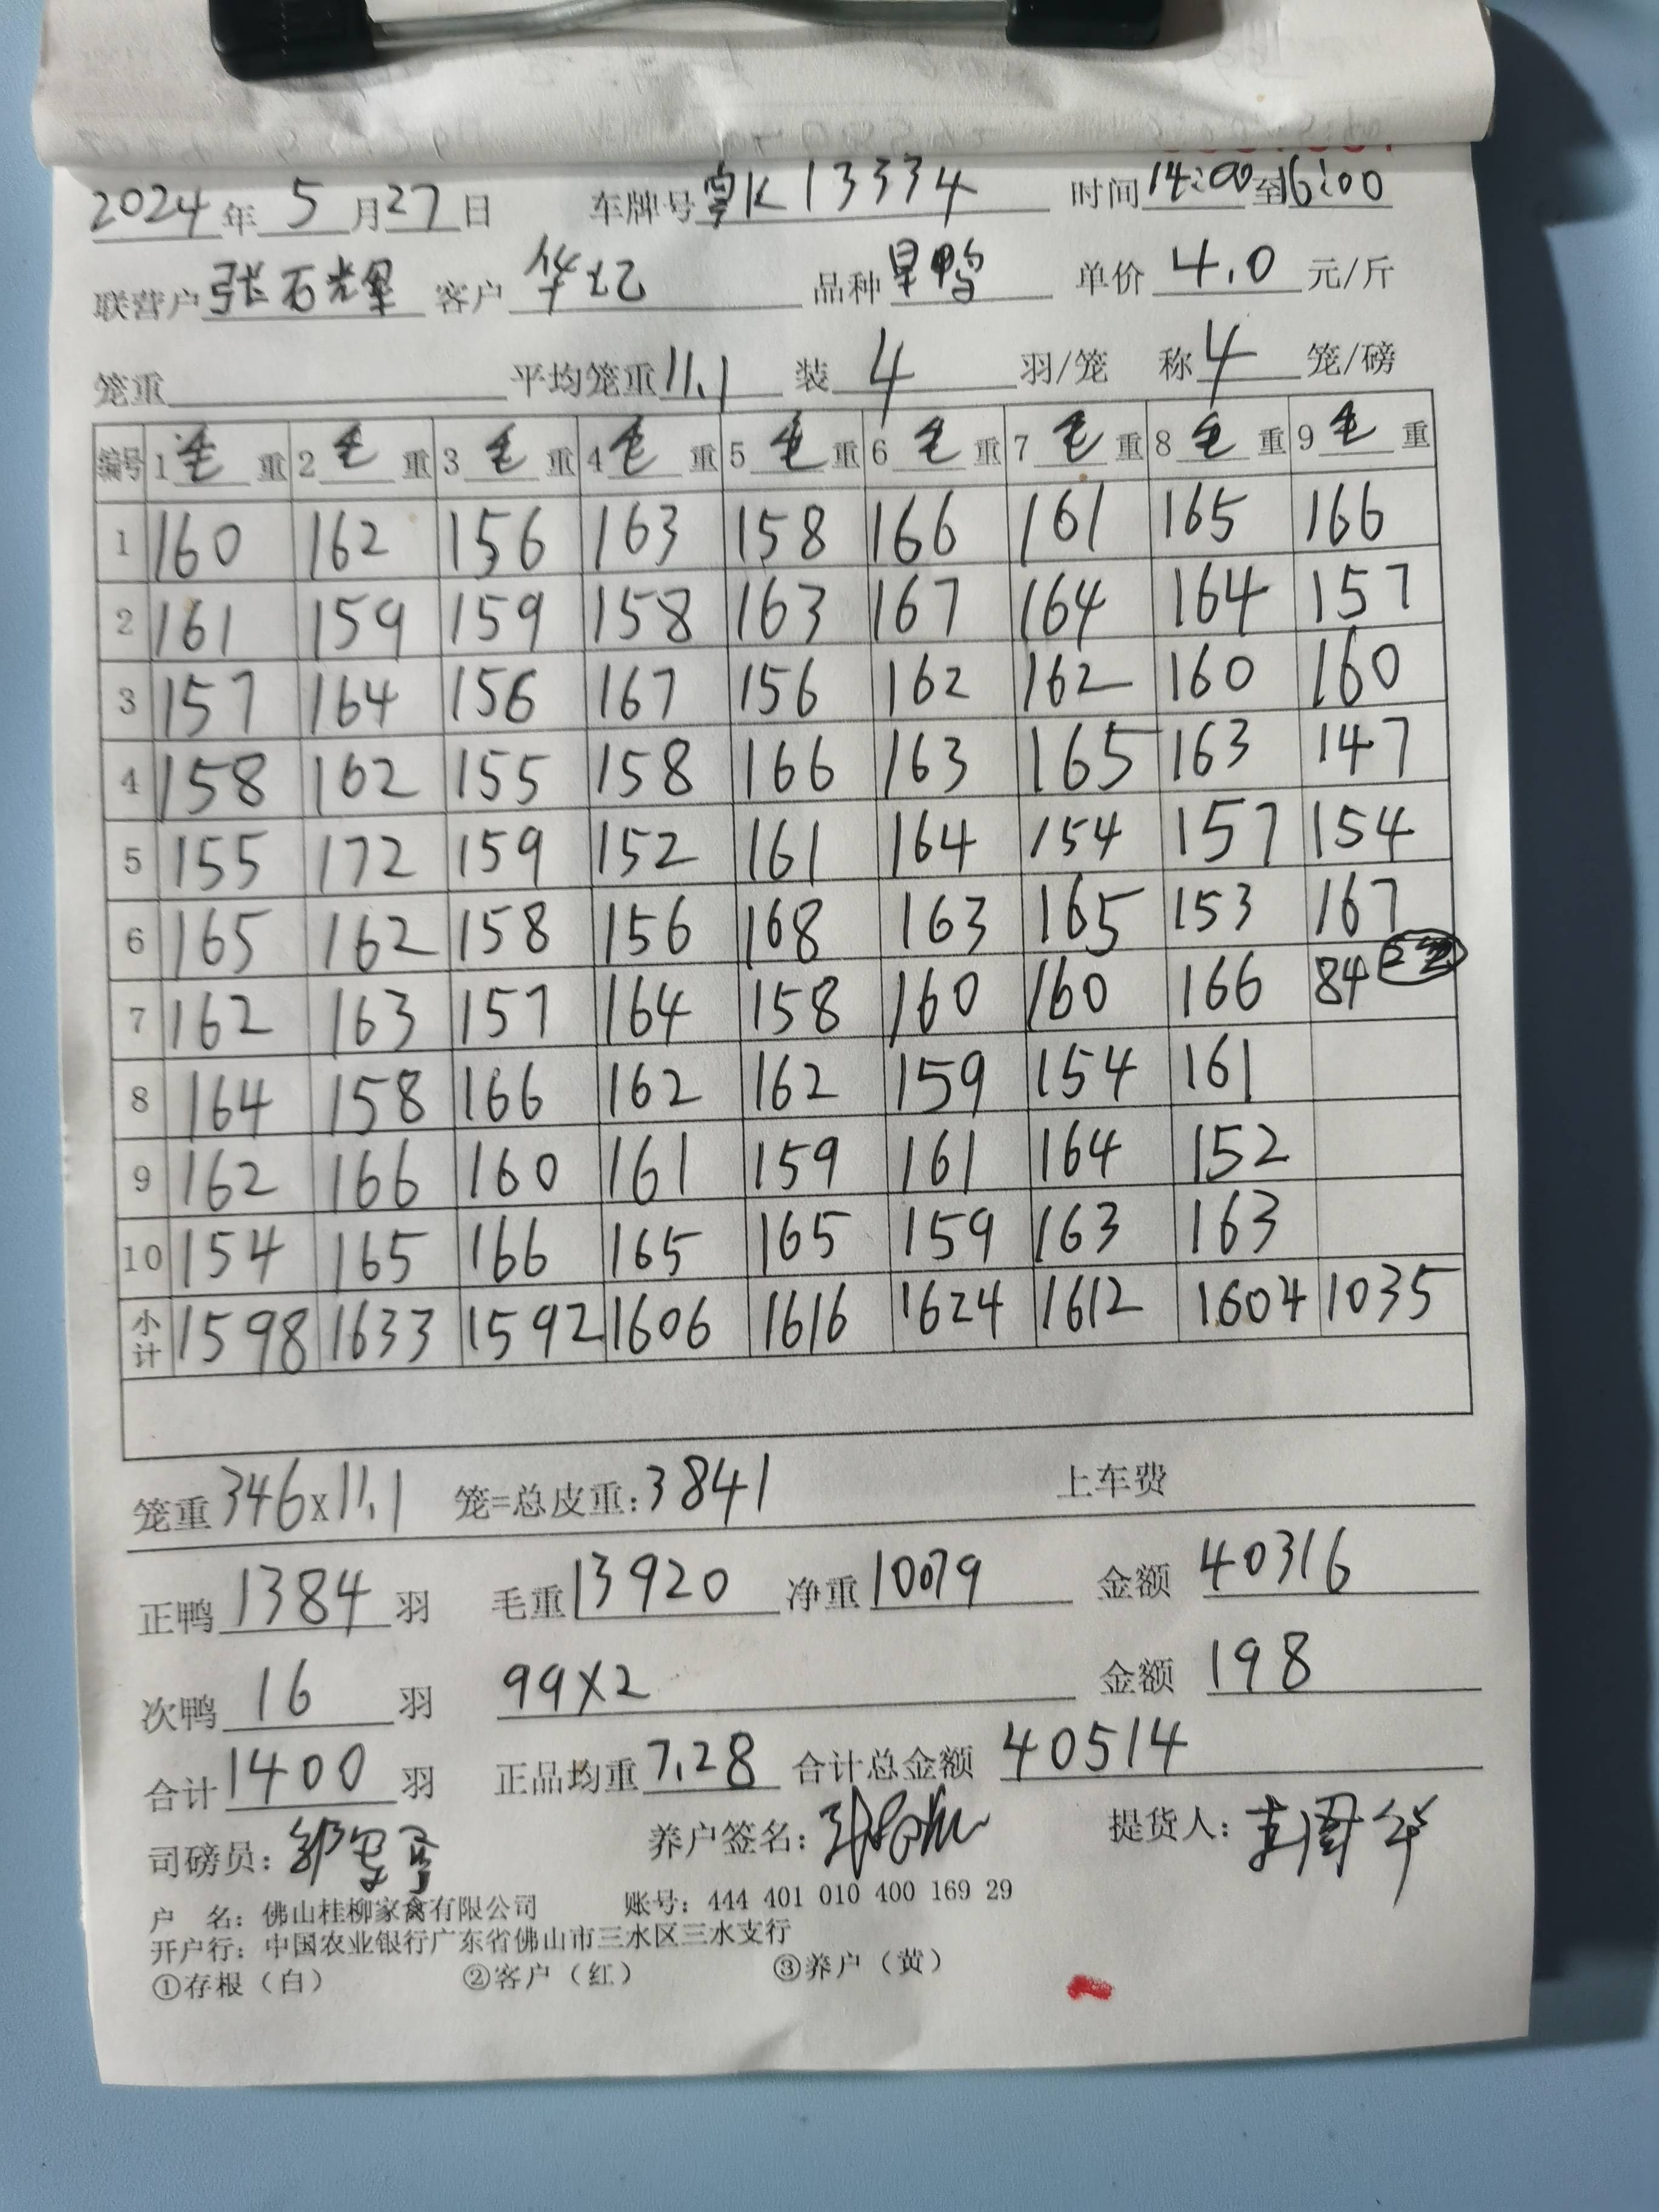 2024年5月27日 车牌号粤K13334 时间14:00至16:00
联营户张石辉 客户华记 品种旱鸭 单价4.0元/斤
笼重 平均笼重11.1 装4羽/笼 称4笼/磅
编号 1毛重 2毛重 3毛重 4毛重 5毛重 6毛重 7毛重 8毛重 9毛重
1 160 162 156 163 158 166 161 165 166
2 161 159 159 158 163 167 164 164 157
3 157 164 156 167 156 162 162 160 160
4 158 162 155 158 166 163 165 163 147
5 155 172 159 152 161 164 154 157 154
6 165 162 158 156 168 163 165 153 167
7 162 163 157 164 158 160 160 166 84
8 164 158 166 162 162 159 154 161
9 162 166 160 161 159 161 164 152
10 154 165 166 165 165 159 163 163
小计 1598 1633 1592 1606 1616 1624 1612 1604 1035
笼重346x11.1 笼=总皮重:3841 上车费
正鸭1384羽 毛重13920 净重10079 金额40316
次鸭16羽 99X2 金额198
合计1400羽 正品均重7.28 合计总金额40514
司磅员: 养户签名: 提货人:
户 名:佛山桂柳家禽有限公司 账号:444 401 010 400 169 29
开户行:中国农业银行广东省佛山市三水区三水支行
①存根(白) ②客户(红) ③养户(黄)